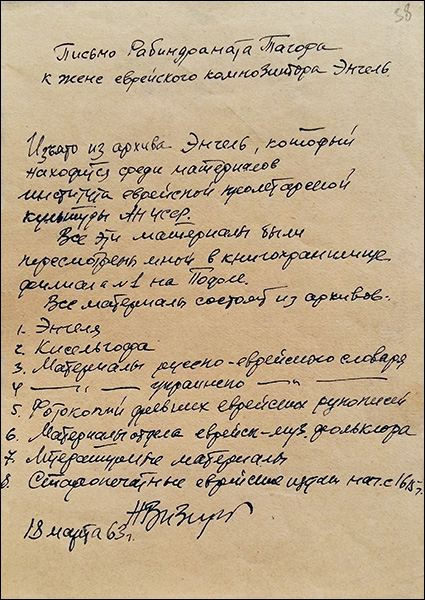 38
Письмо Рабиндраната Тагора
к жене еврейского композитора Энгель.
Изъято из архива Энгель, который
находится среди материалов
института еврейской пролетарской
культуры АН УССР.
Все эти материалы были
пересмотрены мной в книгохранилище
филиала №1 на Подоле.
Все материалы состоят из архивов.
1. Энгеля
2. Кисельгофа
3. Материалы русско-еврейского словаря
4 — " — украинско — " —
5. Фотокопии древних еврейских рукописей
6. Материалы отдела еврейск-муз. фольклора
7. Литературные материалы
8. Старопечатные еврейские издан нач. с 16
18 марта 63 г.